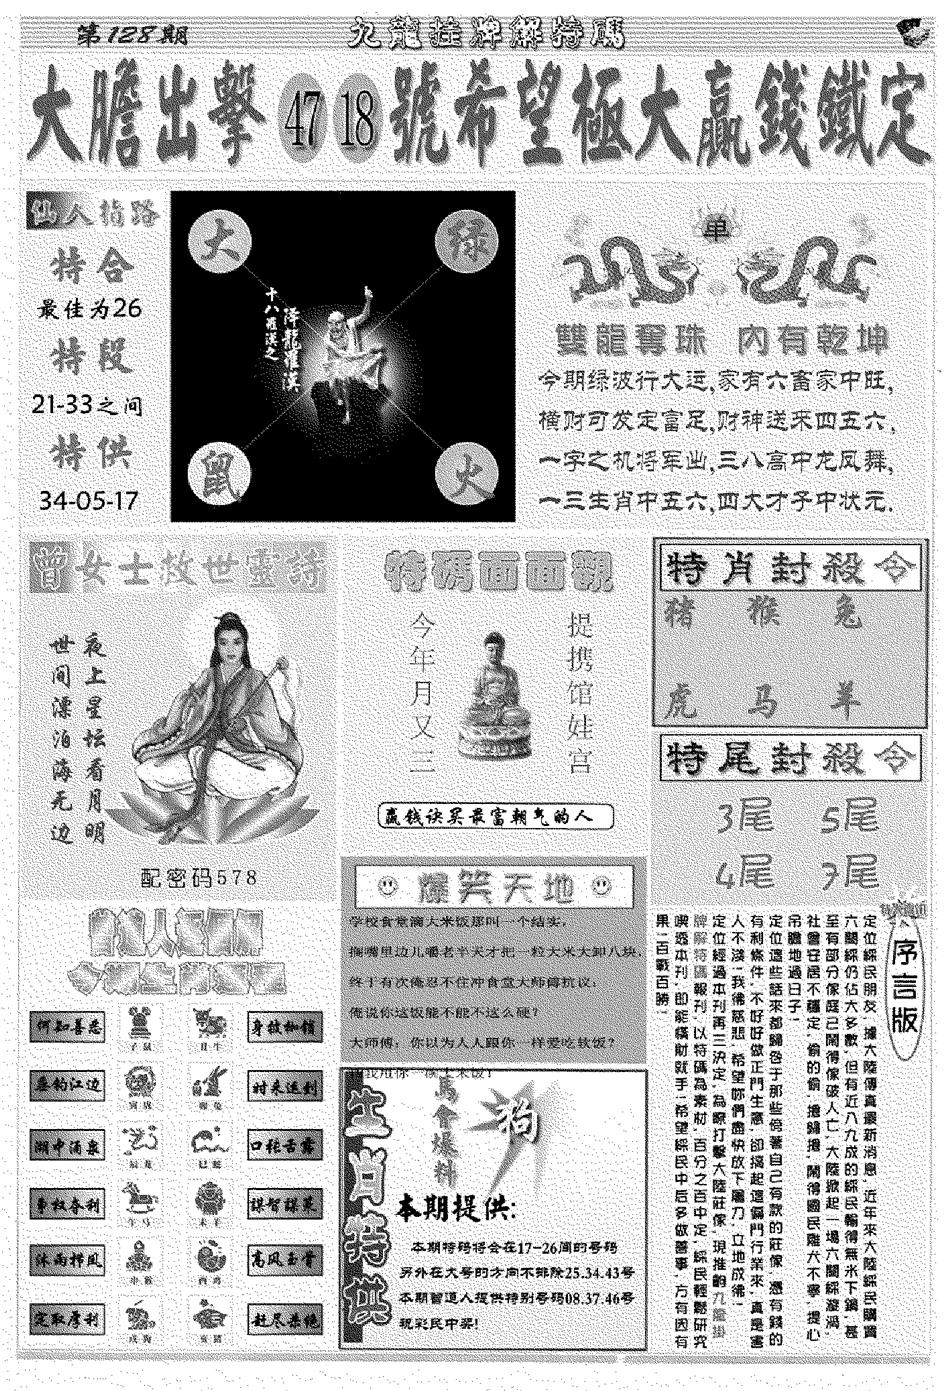 第128期
九龍挂牌解特碼
大膽出擊 47 18 號希望極大贏錢鐵定
仙人指路
特合
最佳为26
特段
21-33之间
特供
34-05-17
大
绿
十八羅漢之
降龍羅漢
鼠
火
单
雙龍奪珠 內有乾坤
今期绿波行大运,家有六畜家中旺,
横财可发定富足,财神送来四五六,
一字之机将军出,三八高中龙凤舞,
一三生肖中五六,四大才子中状元.
曾女士救世靈詩
夜上星坛看月明
世间漂泊海无边
配密码578
特碼面面觀
提携馆娃宫
今年月又三
赢钱诀买最富朝气的人
特肖封殺令
猪 猴 兔
虎 马 羊
特尾封殺令
3尾 5尾
4尾 7尾
爆笑天地
学校食堂滴大米饭那叫一个结实,
搁嘴里边儿嚼老半天才把一粒大米大卸八块,
终于有次俺忍不住冲食堂大师傅抗议:
俺说你这饭能不能不这么硬?
大师傅: 你以为人人跟你一样爱吃软饭?
何知善恶
子鼠
丑牛
身披枷锁
垂钓江边
寅虎
卯兔
时来运到
湖中涌泉
辰龙
巳蛇
口张舌露
争权夺利
午马
未羊
谋智谋策
沐雨栉风
申猴
酉鸡
高风玉骨
定取厚利
戌狗
亥豬
赶尽杀绝
生肖特供
馬會爆料
狗
本期提供:
本期特码将会在17-26间的号码
另外在大号的方向不排除25.34.43号
本期曾道人提供特别号码08.37.46号
祝彩民中奖!
序言版
定位綵民朋友, 據大陸傳真最新消息, 近年來大陸綵民購買
六闔綵仍佔大多數, 但有近八九成的綵民輸得無米下鍋, 甚
至有部分傢庭己鬧得傢破人亡, 大陸掀起一場六闔綵漩渦,
社會安居不穩定, 偷的偷, 搶歸搶, 鬧得國民雞犬不寧, 提心
吊膽地過日子!
定位這些話來都歸咎于那些傍著自己有款的莊傢, 憑有錢的
有利條件, 不好好做正門生意, 卻搞起這偏門行業來, 真是害
人不淺! 我彿慈悲, 希望妳們盡快放下屠刀, 立地成彿!
定位經過本刊再三決定, 為瞭打擊大陸莊傢, 現推齣九龍掛
牌解特碼報刊, 以特碼為素材, 百分之百中定, 綵民輕鬆研究
喫透本刊, 即能橫財就手! 希望綵民中后多做善事, 方有因有
果! 百戰百勝!